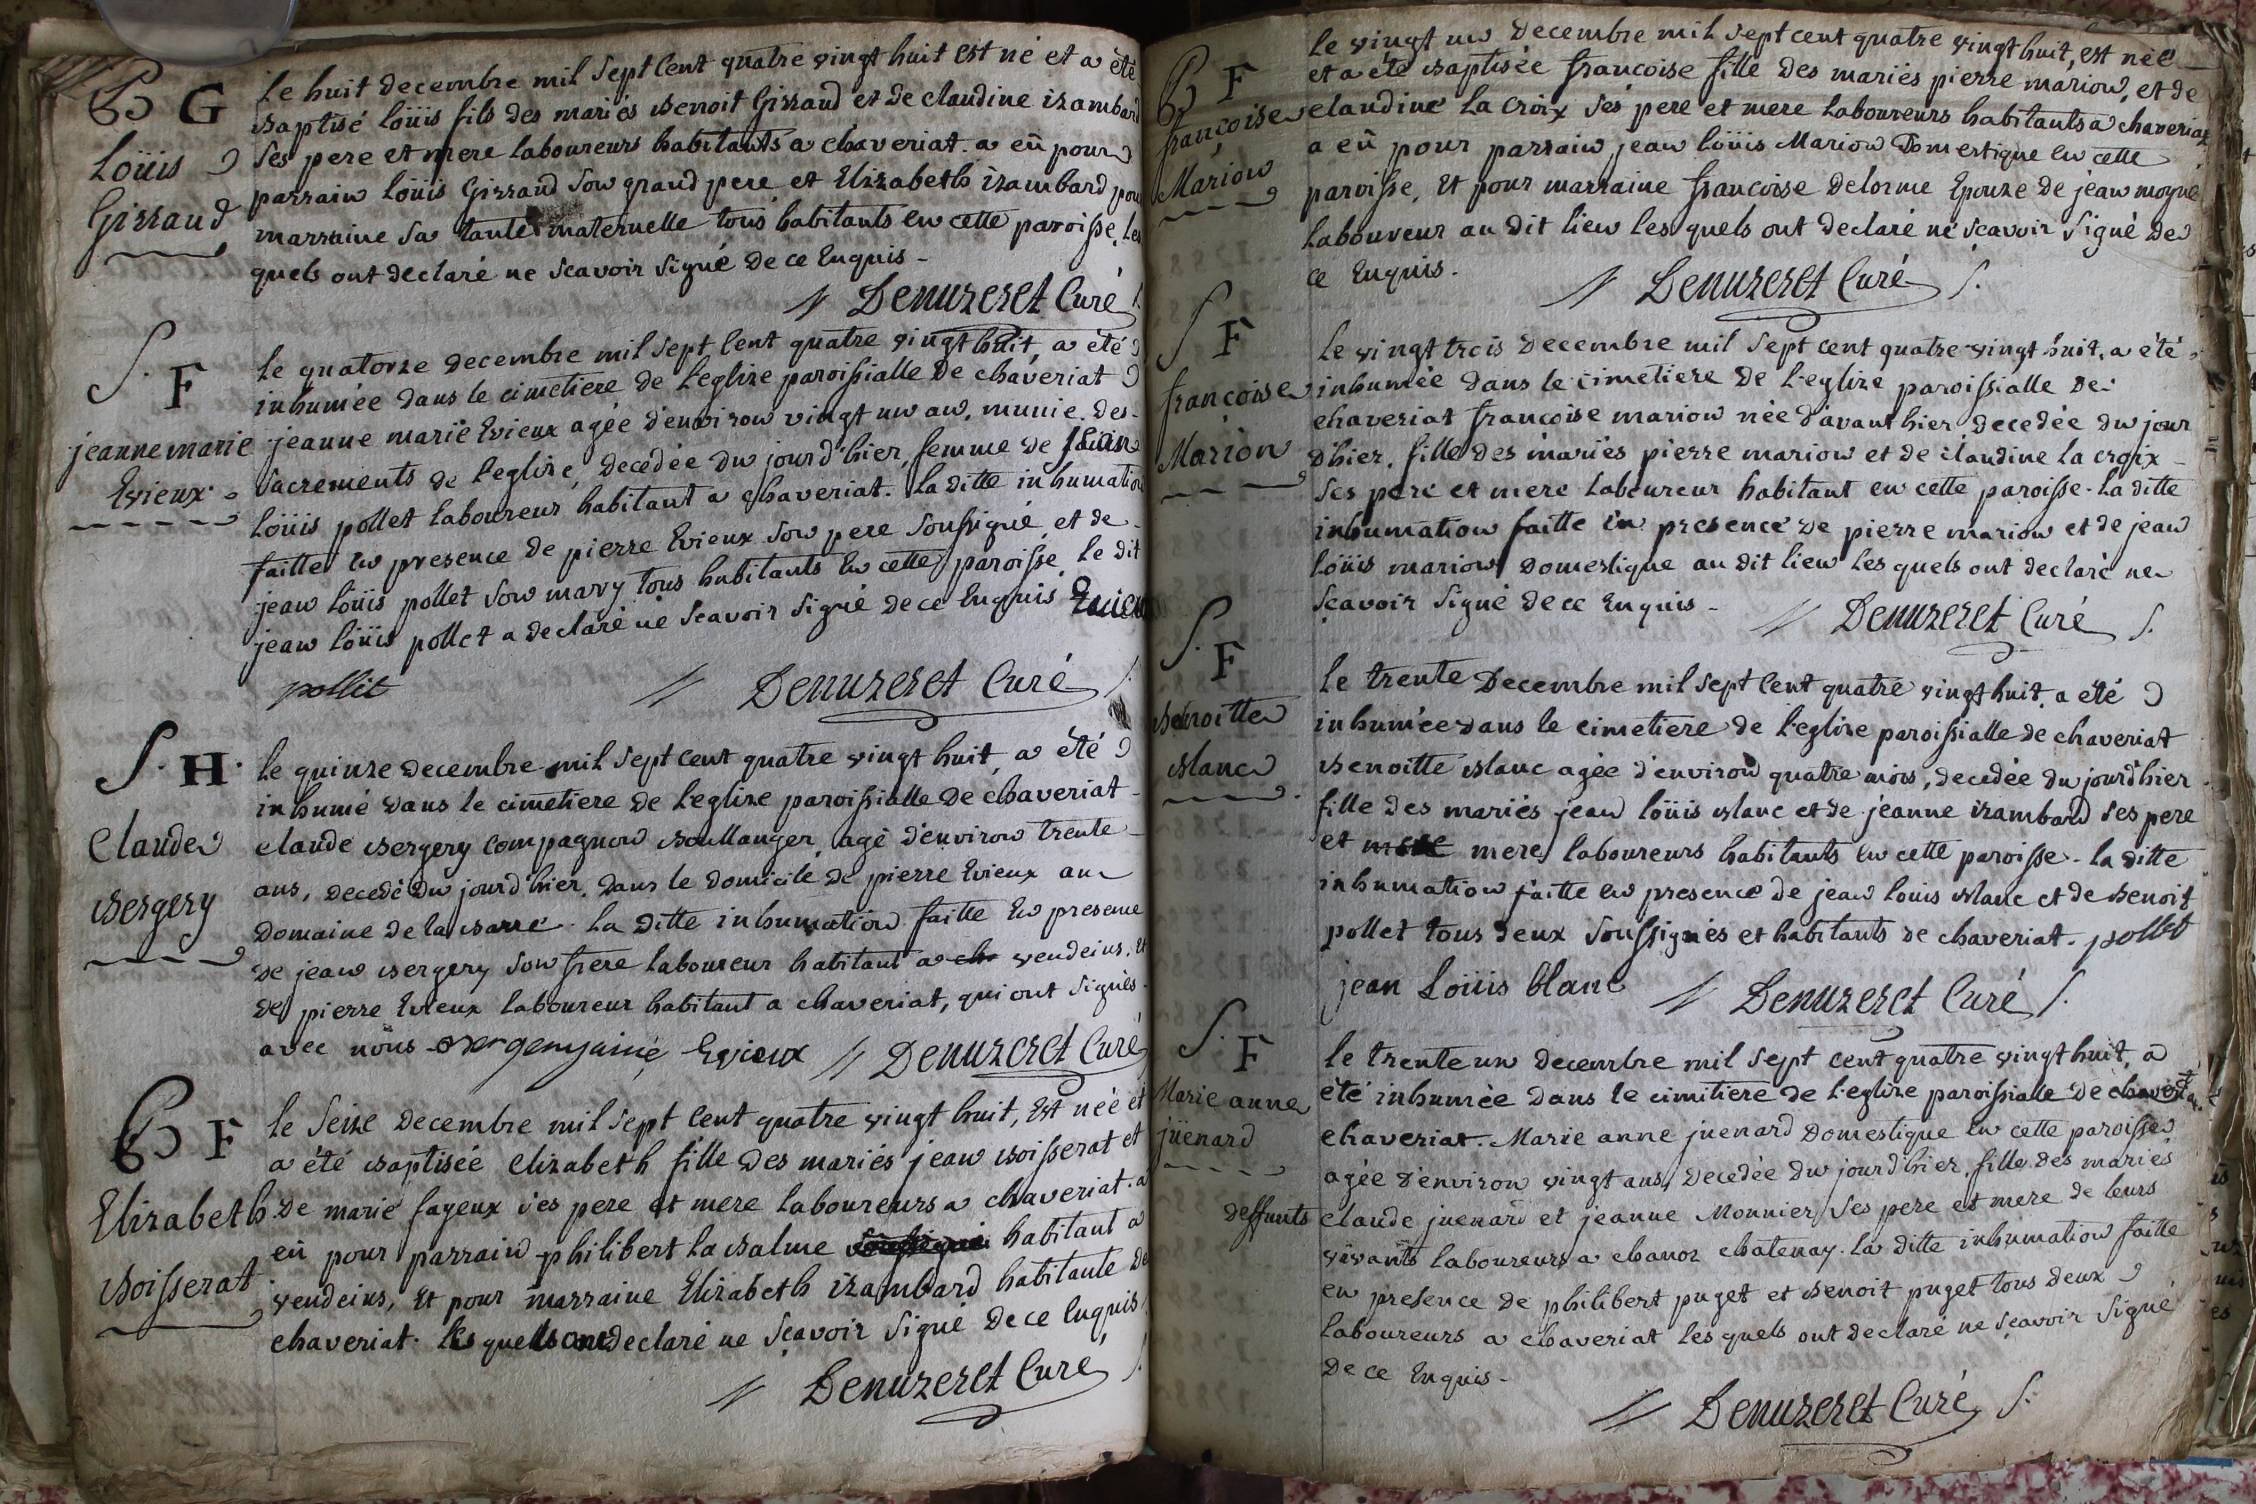 B G
Loüis
Girraud
le huit decembre mil sept cent quatre vingt huit est né et a été
baptisé loüis fils des mariés benoit Girraud et de claudine izambard
ses pere et mere laboureurs habitants a chaveriat. a eû pour
parrain loüis Girraud son grand pere et Elizabeth izambard pour
marraine sa tante maternelle tous habitants en cette paroisse, les
quels ont declaré ne scavoir signé de ce Enquis -
Denuzeret Curé
S. F
jeanne marie
Evieux
le quatorze decembre mil sept cent quatre vingt huit, a été
inhumée dans le cimetiere de l'eglize paroissialle de chaveriat
jeanne marie Evieux agée d'environ vingt un an, munie des
sacrements de l'eglize, decedée du jourd'hier, femme de jean
loüis pollet laboureur habitant a chaveriat. la ditte inhumation
faitte en presence de pierre Evieux son pere soussigné, et de
jean loüis pollet son mary tous habitants en cette paroisse, le dit
jean loüis pollet a declaré ne scavoir signé de ce Enquis Evieux
pollit
Denuzeret Curé
S. H.
Claude
bergery
le quinze decembre mil sept cent quatre vingt huit, a été
inhumé dans le cimetiere de l'eglize paroissialle de chaveriat
claude bergery compagnon boullanger, agé d'environ trente
ans, decedé du jourd'hier, dans le domicile de pierre Evieux au
domaine de la barre. la ditte inhumation faitte en presence
de jean bergery son frere laboureur habitant a ch vendeins, Et
de pierre Evieux laboureur habitant a chaveriat, qui ont signés
avec nous Evieux Denuzeret Curé
B F
Elizabeth
boisserat
le seize decembre mil sept cent quatre vingt huit, Est née et
a été baptisée Elizabeth fille des mariés jean boisserat et
de marie fayeux ses pere et mere laboureurs a chaveriat. a
eû pour parrain philibert la balme soussigné habitant a
vendeins, Et pour marraine Elizabeth izambard habitante de
chaveriat. les quels ont declaré ne scavoir signé de ce Enquis
Denuzeret Curé
B F
françoise
Marion
le vingt un decembre mil sept cent quatre vingt huit, est née
et a été baptisée françoise fille des mariés pierre marion, et de
claudine la croix ses pere et mere laboureurs habitants a chaveriat
a eû pour parrain jean loüis Marion domestique en cette
paroisse, Et pour marraine françoise delorme Epouze de jean moyne
laboureur au dit lieu les quels ont declaré ne scavoir signé de
ce Enquis.
Denuzeret Curé
S F
françoise
Marion
le vingt trois decembre mil sept cent quatre vingt huit, a été
inhumée dans le cimetiere de l'eglize paroissialle de
chaveriat françoise marion née d'avant hier decedée du jour
d'hier, fille des mariés pierre marion et de claudine la croix -
ses pere et mere laboureur habitant en cette paroisse. la ditte
inhumation faitte en presence de pierre marion et de jean
loüis marion domestique au dit lieu les quels ont declaré ne
scavoir signé de ce Enquis -
Denuzeret Curé
S. F
benoitte
blanc
le trente decembre mil sept cent quatre vingt huit, a été
inhumée dans le cimetiere de l'eglize paroissialle de chaveriat
benoitte blanc agée d'environ quatre mois, decedée du jourd'hier
fille des mariés jean loüis blanc et de jeanne izambard ses pere
et mere mere laboureurs habitants en cette paroisse. la ditte
inhumation faitte en presence de jean louis blanc et de benoit
pollet tous deux soussignés et habitants de chaveriat. pollet
jean Loüis blanc
Denuzeret Curé
S. F
Marie anne
jüenard
le trente un decembre mil sept cent quatre vingt huit, a
été inhumée dans le cimitiere de l'eglize paroissialle de chaveriat
chaveriat. Marie anne juenard domestique en cette paroisse
agée d'environ vingt ans, decedée du jourd'hier, fille des mariés
deffunts claude juenard et jeanne Monnier, ses pere et mere de leurs
vivants laboureurs a chanoz chatenay. la ditte inhumation faitte
en presence de philibert puget et benoit puget tous deux
laboureurs a chaveriat les quels ont declaré ne scavoir signé
de ce Enquis -
Denuzeret Curé